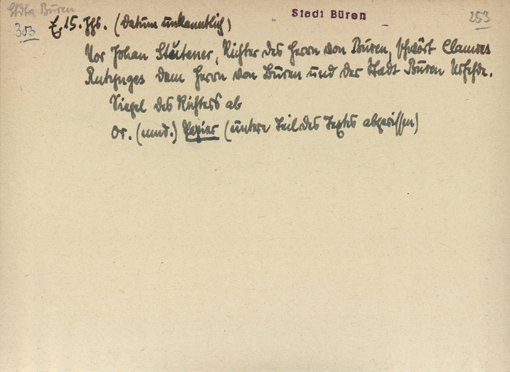 Stdtg Büren
303
E. 15. Jhs. (Datum unkenntlich)
Stadt Büren
253
Vor Johan Stöitener, Richter des Herrn von Büren, schwört Clawes
dem Herrn von Büren und der Stadt Büren Urfehde.
Siegel des Richters ab
Or. (mnd.) Papier (untere Teil des Textes abgerissen)